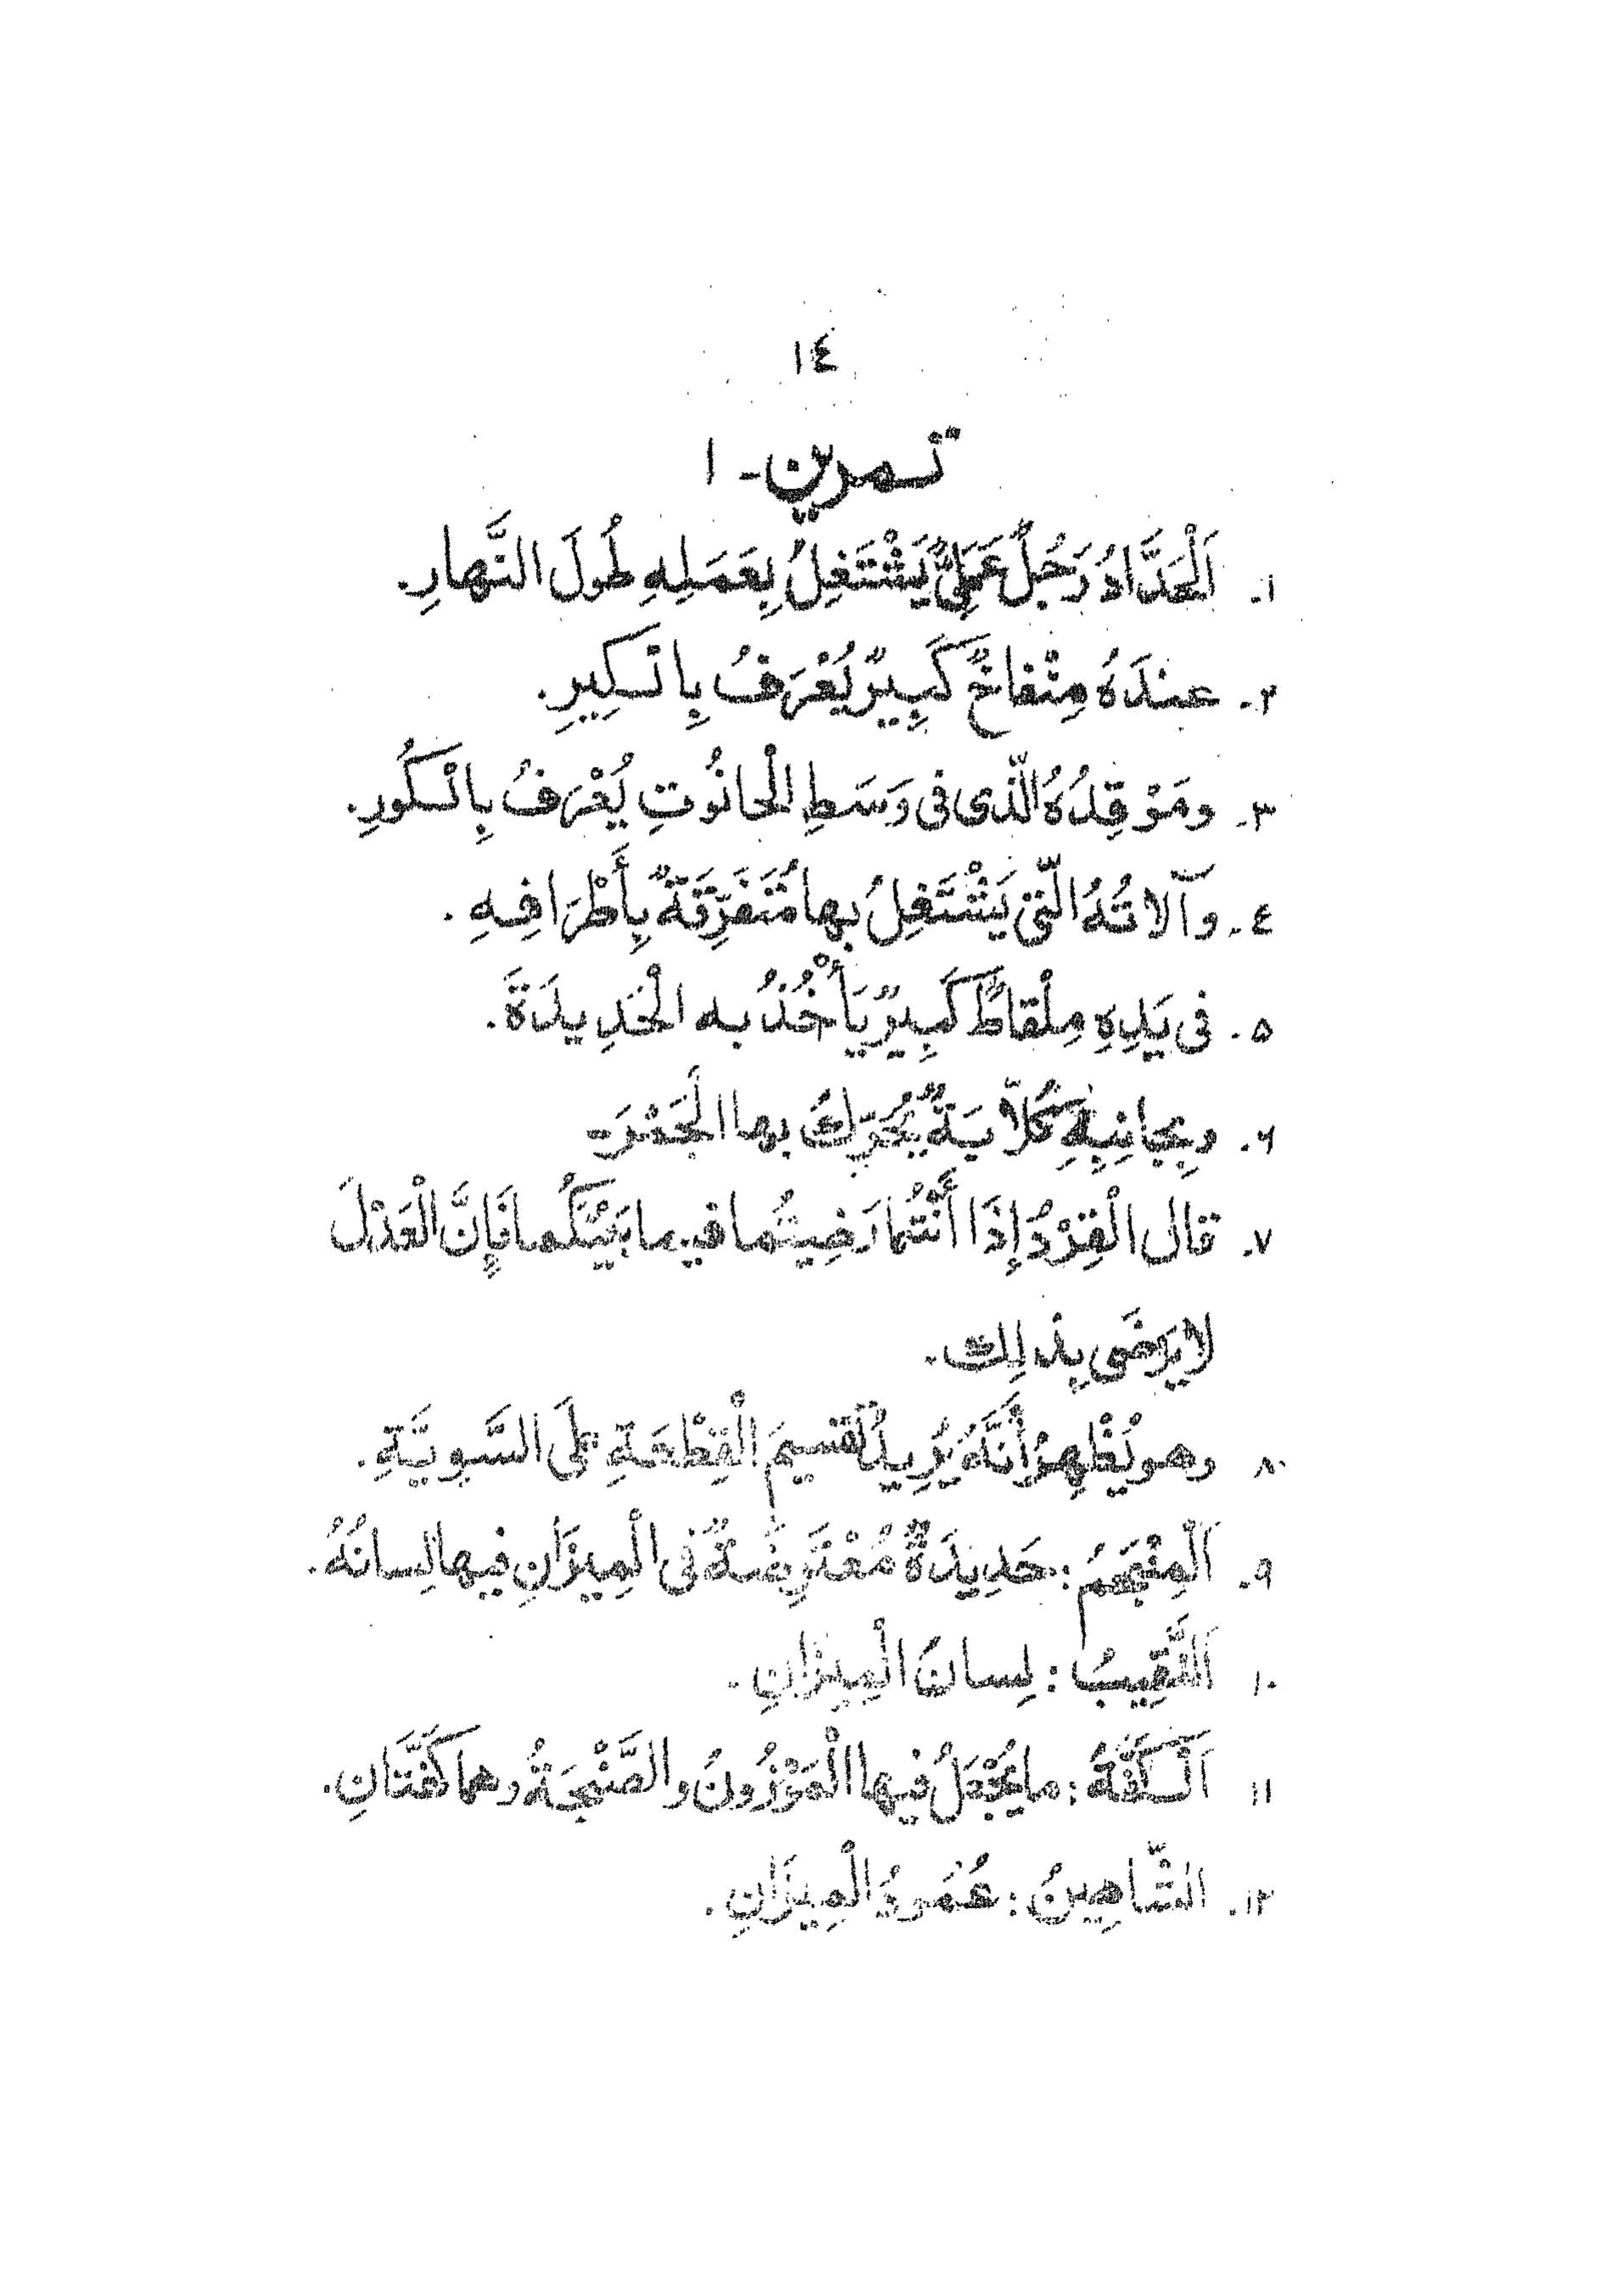 ١٤
تمرين - ١
١- اَلْحَدَّادُ رَجُلٌ عَمَلِيٌّ يَشْتَغِلُ بِعَمَلِهِ طُولَ النَّهارِ.
٢- عندَهُ مِنْفاخٌ كَبِيرٌ يُعْرَفُ بِالكِيرِ.
٣- ومَوْقِدُهُ الَّذى فى وَسَطِ الْحانُوتِ يُعْرَفُ بِالْكُورِ.
٤- وآلاتُهُ الَّتى يَشْتَغِلُ بها مُتَفَرِّقَةٌ بِأَطْرَافِهِ.
٥- فى يَدِهِ مِلْقاطٌ كَبِيرٌ يَأْخُذُ به الْحَدِيدَةَ.
٦- وبِجانِبِهِ كُلَّابَةٌ يُحَرِّكُ بها الْجَمْرَ-
٧- قال الْقِرْدُ إِذَا أَنْتُما رَضِيتُما فيما بَيْنَكُما فَإِنَّ الْعَدْلَ
لا يَرْضَى بِذلِكَ.
٨- وهو يُظْهِرُ أَنَّهُ يُرِيدُ تَقسيمَ الْقِطْعَةِ عَلَى السَّوِيَّةِ.
٩- اَلْمِنْجَمُ: حَدِيدَةٌ مُعْتَرِضَةٌ فى الْمِيزَانِ فيها لِسانُهُ.
١٠- اَلنَّقِيبُ: لِسانُ الْمِيزَانِ.
١١ اَلْكَفَّةُ: ما يُجْعَلُ فيها الْمَوْزُونُ والصَّنْجَةُ وهما كَفَّتَانِ.
١٢- الشَّاهِينُ: عُمُودُ الْمِيزَانِ.